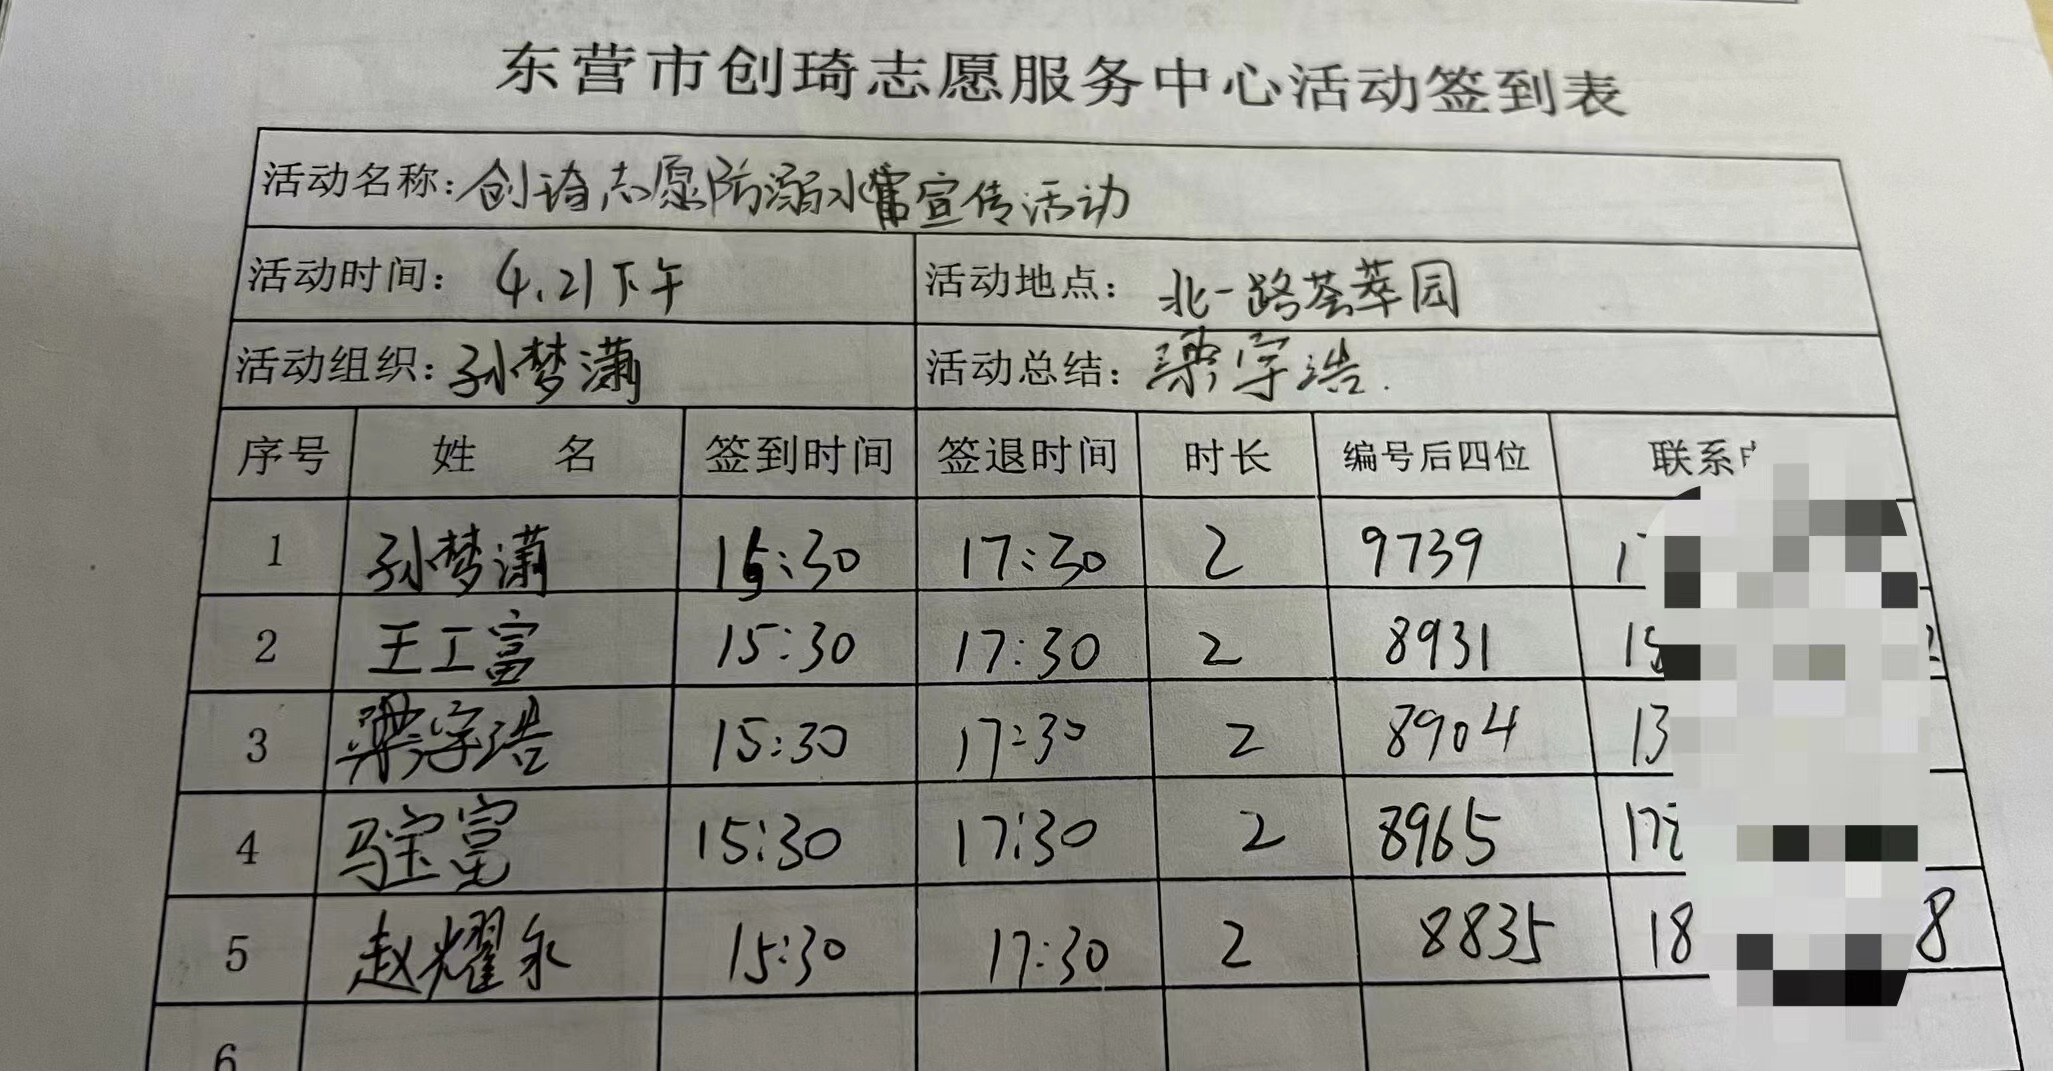 东营市创琦志愿服务中心活动签到表
活动名称：创琦志愿防溺水宣传活动
活动时间： 4.21下午 活动地点： 北一路荟萃园
活动组织：孙梦潇 活动总结：梁宇浩.
序号 姓 名 签到时间 签退时间 时长 编号后四位 联系
1 孙梦潇 15:30 17:30 2 9739
2 王工富 15:30 17:30 2 8931 15
3 梁宇浩 15:30 17:30 2 8904 13
4 马宝富 15:30 17:30 2 8965 17
5 赵耀永 15:30 17:30 2 8835 18 8
6